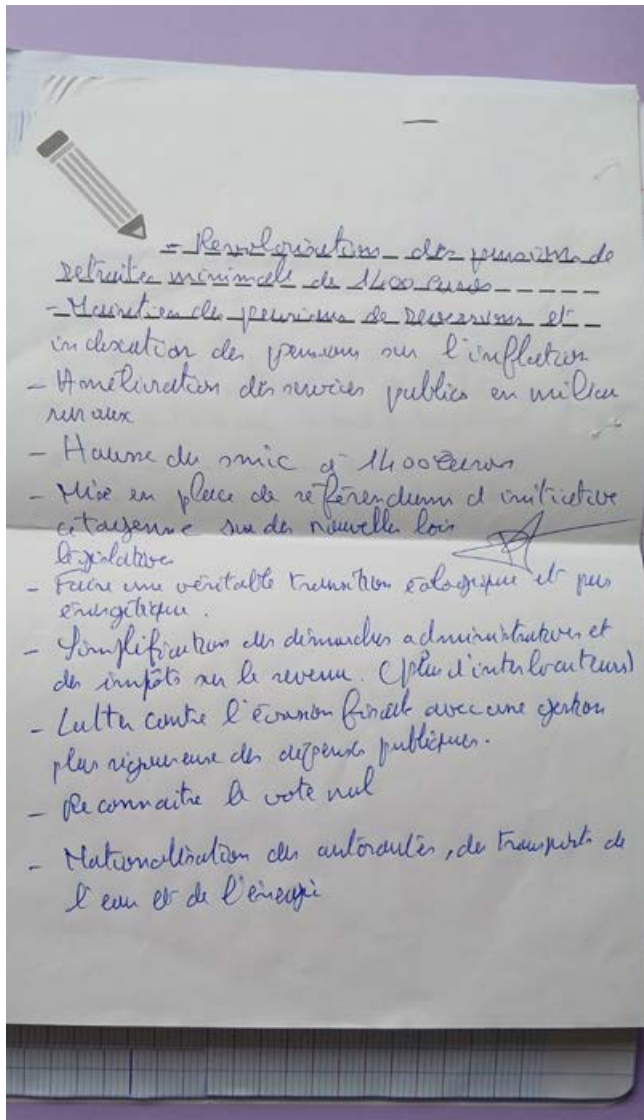 - Revalorisation des pensions de
retraites minimale de 1400 euros
- Maintien des pensions de reversions et
indexation des pensions sur l'inflation
- Amélioration des services publics en milieu
ruraux
- Hausse du smic à 1400 euros
- Mise en place de référendum d'initiative
citoyenne sur des nouvelles lois
législatives
- Faire une véritable transition écologique et pas
énergétique.
- Simplification des démarches administratives et
des impôts sur le revenu. (plus d'interlocuteurs)
- Lutter contre l'évasion fiscale avec une gestion
plus rigoureuse des dépenses publiques.
- Reconnaitre le vote nul
- Nationalisation des autoroutes, des transports de
l'eau et de l'énergie